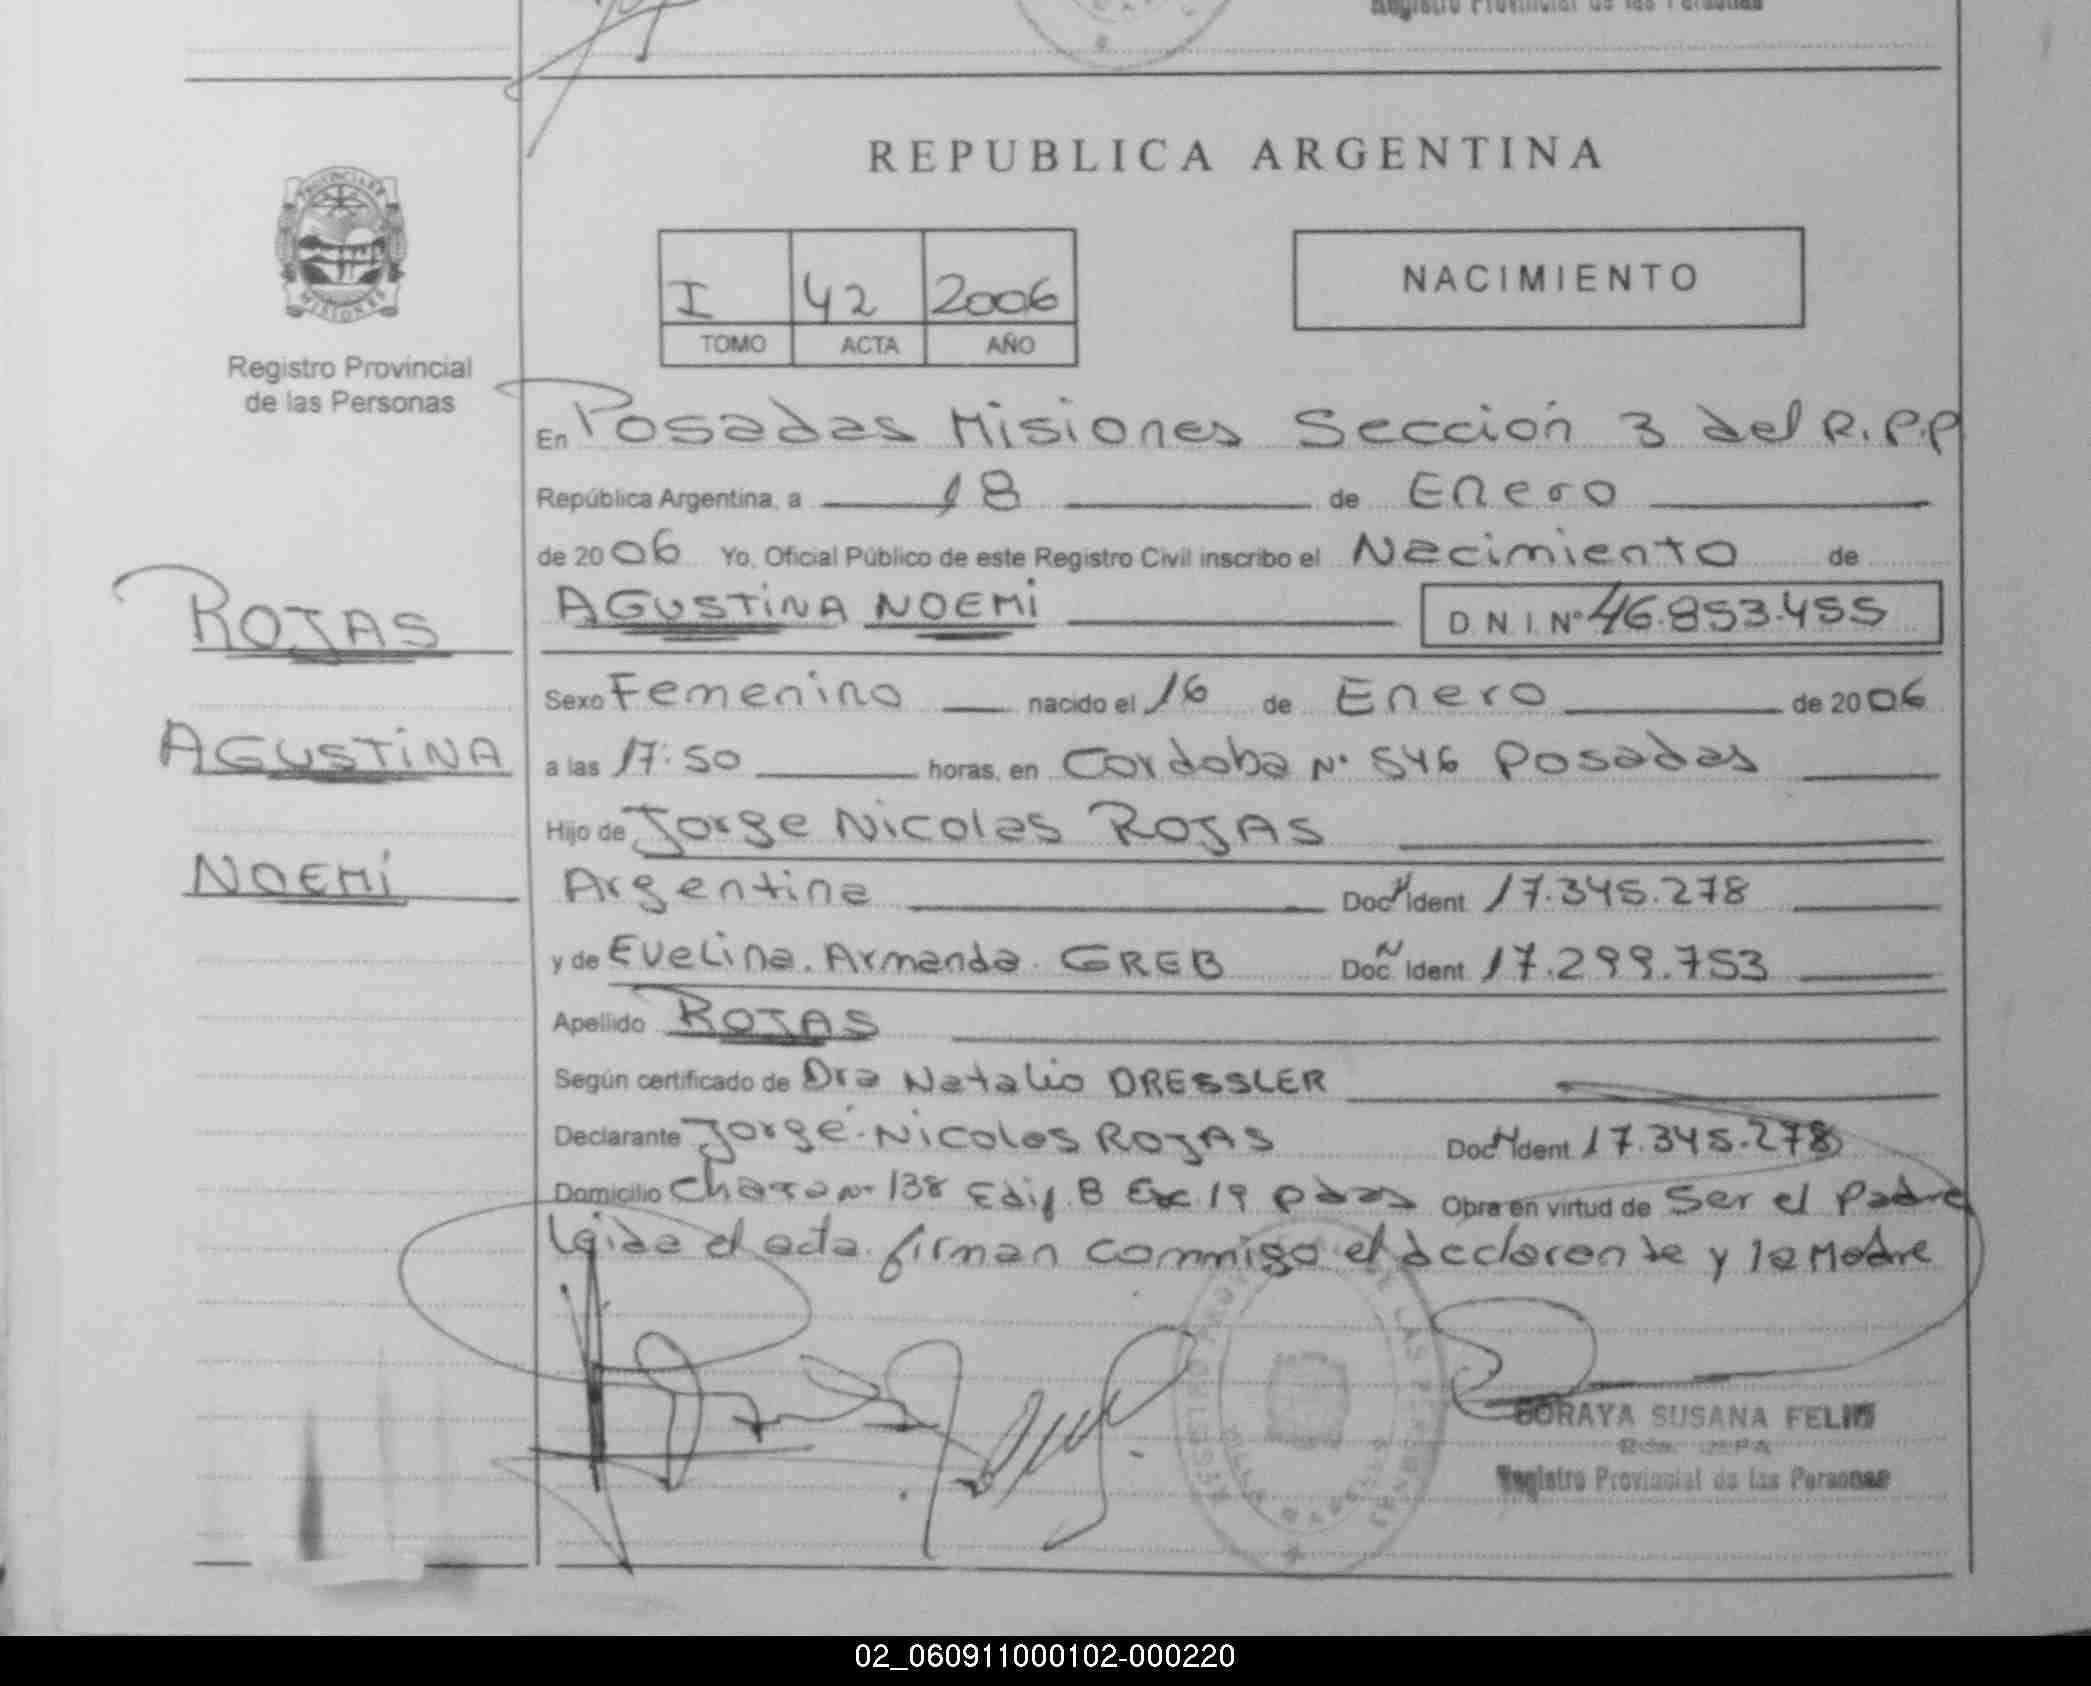 Registro Provincial de las Personas
REPUBLICA ARGENTINA
PROVINCIA DE
MISIONES
Registro Provincial
de las Personas
I 42 2006
TOMO ACTA AÑO
NACIMIENTO
En Posadas Misiones Sección 3 del R.P.P
República Argentina, a 18 de Enero
de 2006 Yo, Oficial Público de este Registro Civil inscribo el Nacimiento de
AGUSTINA NOEMI D.N.I. Nº 46.853.455
ROJAS
AGUSTINA
NOEMI
Sexo Femenino nacido el 16 de Enero de 2006
a las 17:50 horas, en Cordoba Nº 546 Posadas
Hijo de Jorge Nicolas ROJAS
Argentina Doc N Ident 17.345.278
y de Evelina. Armanda. GREB Doc. N Ident 17.299.753
Apellido ROJAS
Según certificado de Dra Natalio DRESSLER
Declarante Jorge Nicolas ROJAS Doc N Ident 17.345.278
Domicilio Nº 138 Edif. B 19 Obra en virtud de Ser el Padre
leida el acta firman conmigo el declarante y la Madre
SORAYA SUSANA
Registro Provincial de las Personas
02_060911000102-000220